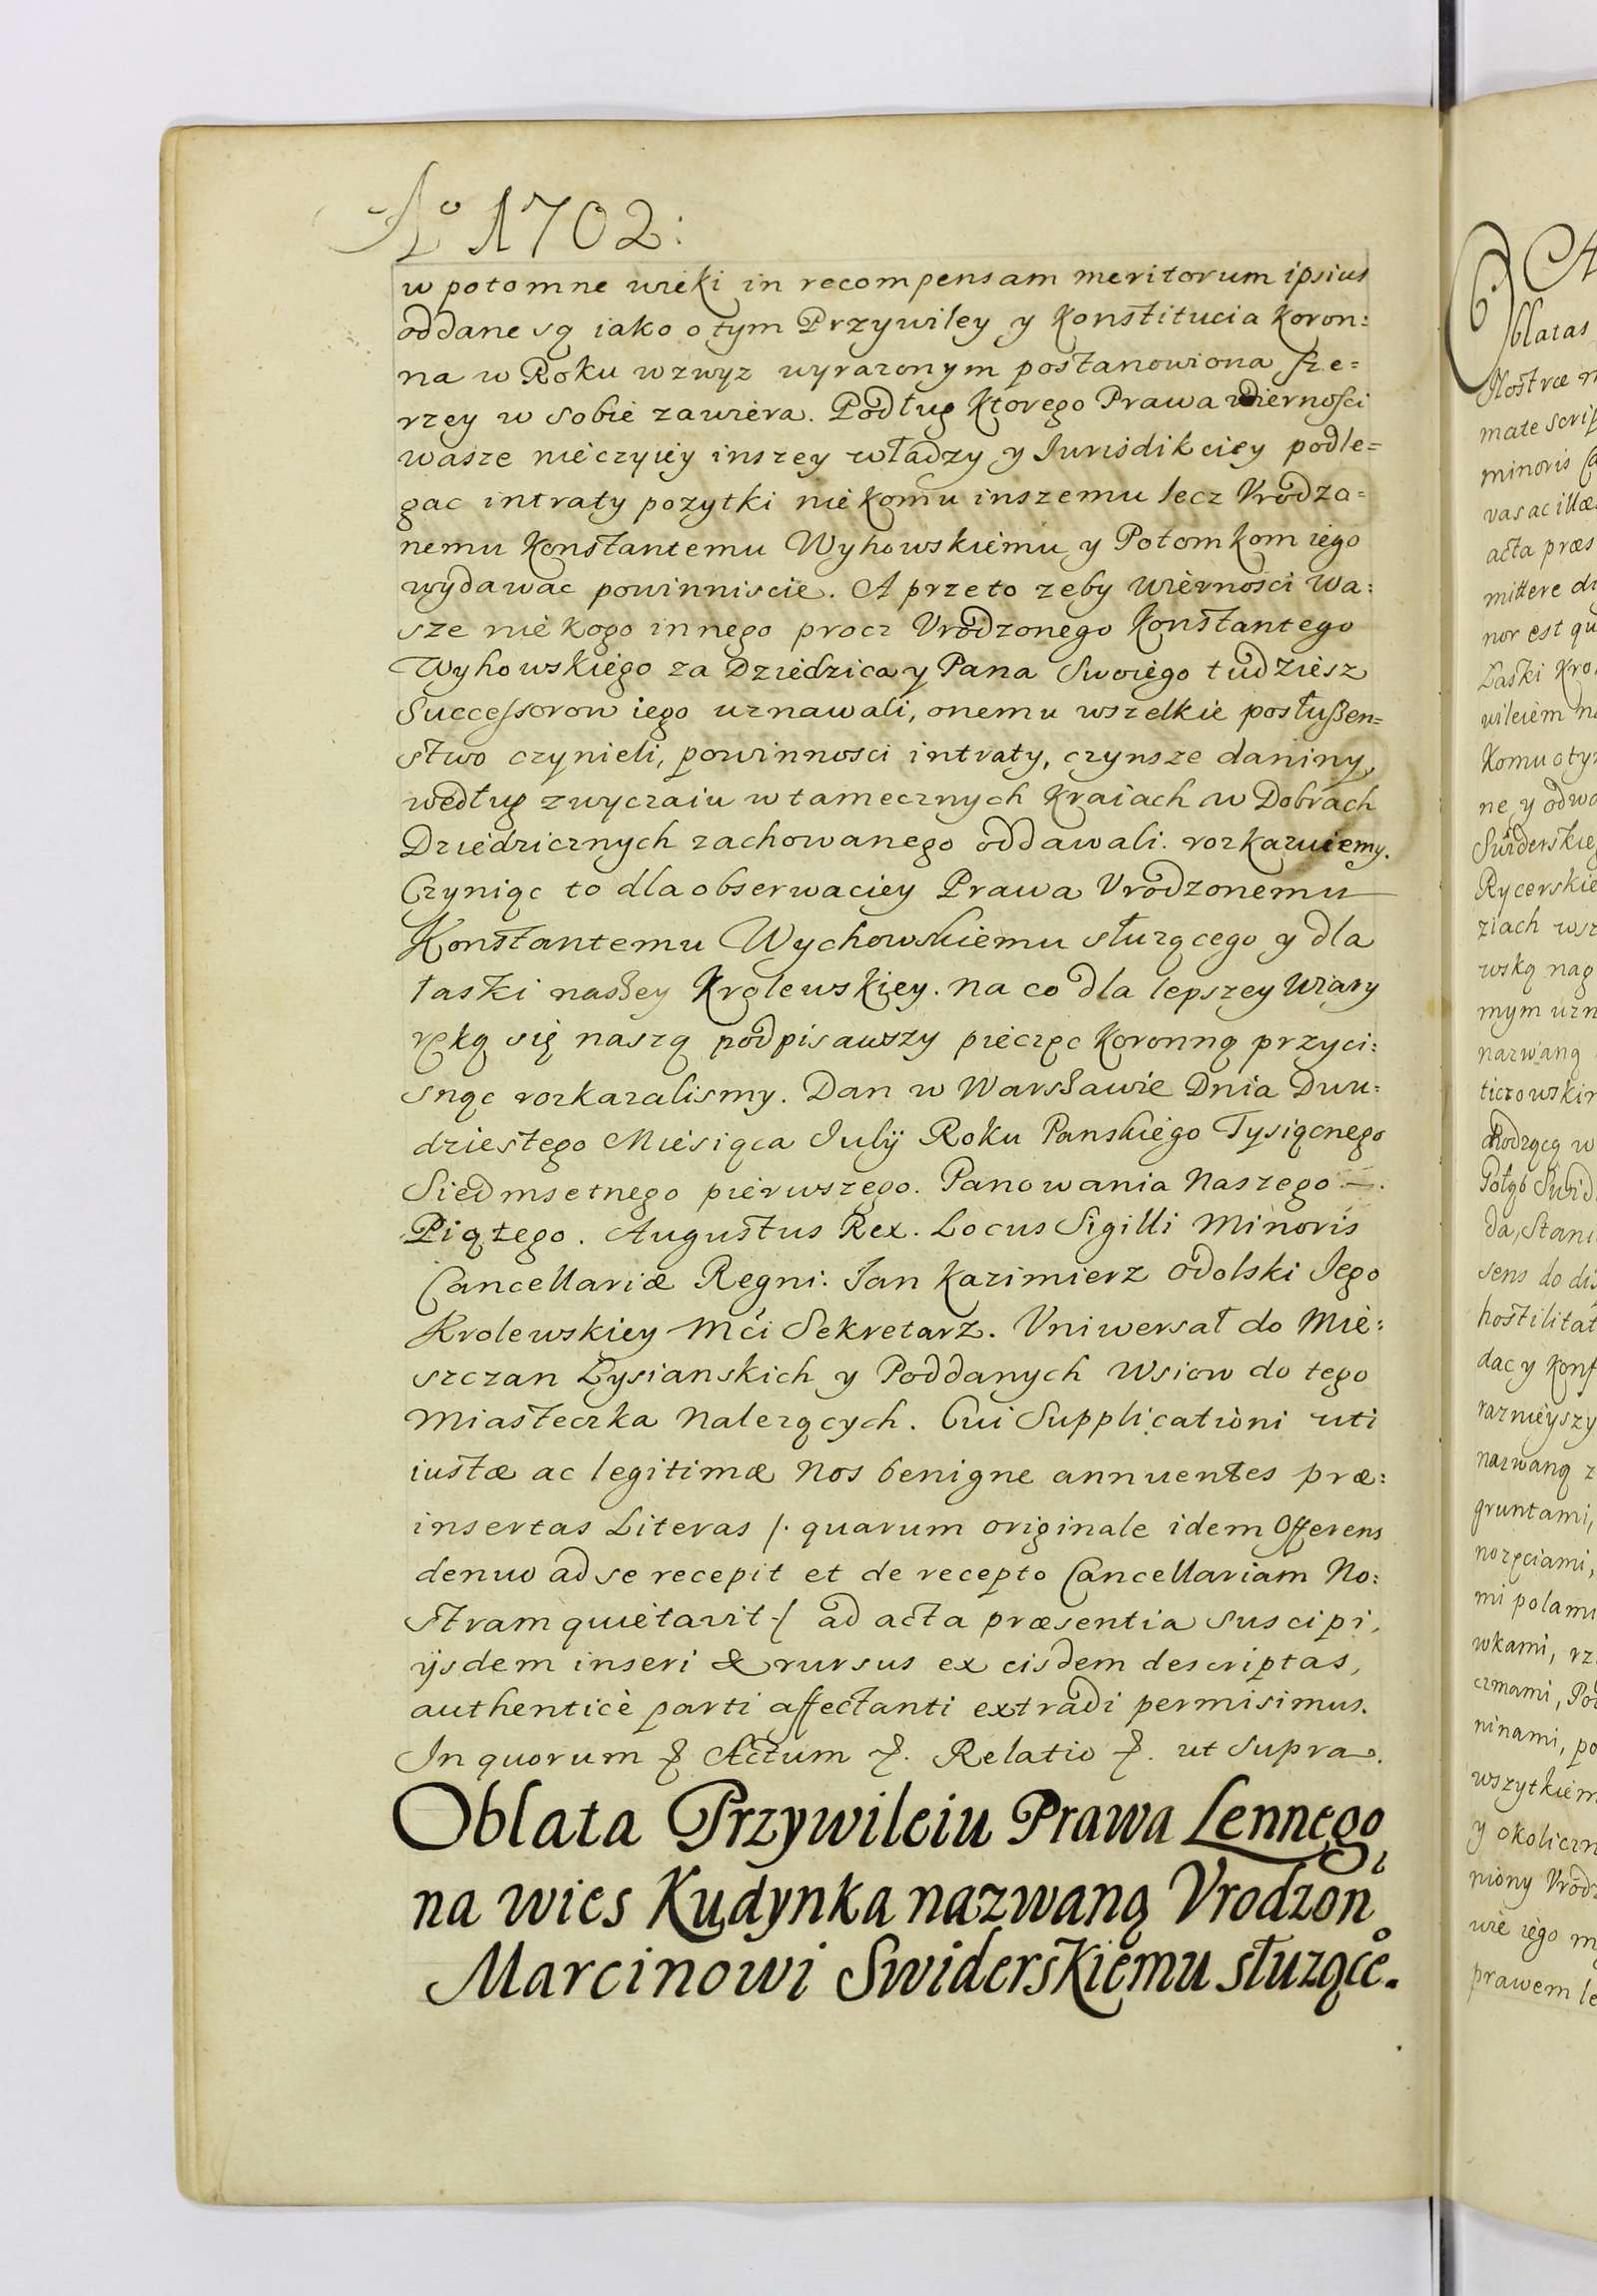 Aº 1702:
w potomne wieki in recompensam meritorum ipsius
oddane są iako o tym Przywiley y Konstitucia Koron=
na w Roku wzwyz wyrazonym postanowiona sze=
rzey w sobie zawiera. Podług ktorego Prawa wierności
wasze nieczyiey inszey władzy y Iurisdikciey podle=
gac intraty pozytki niekomu inszemu lecz Vrodzo=
nemu Konstantemu Wyhowskiemu y Potomkom iego
wydawac powinniscie. A przeto zeby wierności wa=
sze niekogo innego procz Vrodzonego Konstantego
Wyhowskiego za Dziedzica y Pana Swoiego tudziesz
Successorow iego uznawali, onemu wszelkie posłußen=
stwo czynieli, powinnosci intraty, czynsze daniny,
według zwyczaiu w tamecznych kraiach w Dobrach
Dziedzicznych zachowanego oddawali. rozkazuiemy.
Czyniąc to dla obserwaciey Prawa Vrodzonemu
Konstantemu Wychowskiemu słuzącego y dla
łaski naszey Krolewskiey. na co dla lepszey wiary
ręką się naszą podpisawszy pieczęc Koronną przyci=
snąc rozkazalismy. Dan w Warszawie Dnia Dwu=
dziestego Miesiąca Iulij Roku Panskiego Tysiącnego
Siedmsetnego pierwszego. Panowania Naszego —.
Piątego. Augustus Rex. Locus Sigilli Minoris
Cancellariæ Regni. Ian Kazimierz Odolski Iego
Krolewskiey Mći Sekretarz. Vniwersał do Mie=
szczan Łysianskich y Poddanych Wsiow do tego
Miasteczka Nalezących. Cui Supplicationi uti
iustæ ac legitimæ Nos benigne annuentes præ=
insertas Literas /. quarum originale idem Offerens
denuo ad se recepit et de recepto Cancellariam No=
stram quietavit ./ ad acta præsentia suscipi,
ijsdem inseri & rursus ex eisdem descriptas,
authenticè parti affectanti extradi permisimus.
In quorum & Actum &. Relatio &. ut supra.
Oblata Przywileiu Prawa Lennego,
na wies Kudynka nazwaną Vrodzon
Marcinowi Swiderskiemu słuzące.